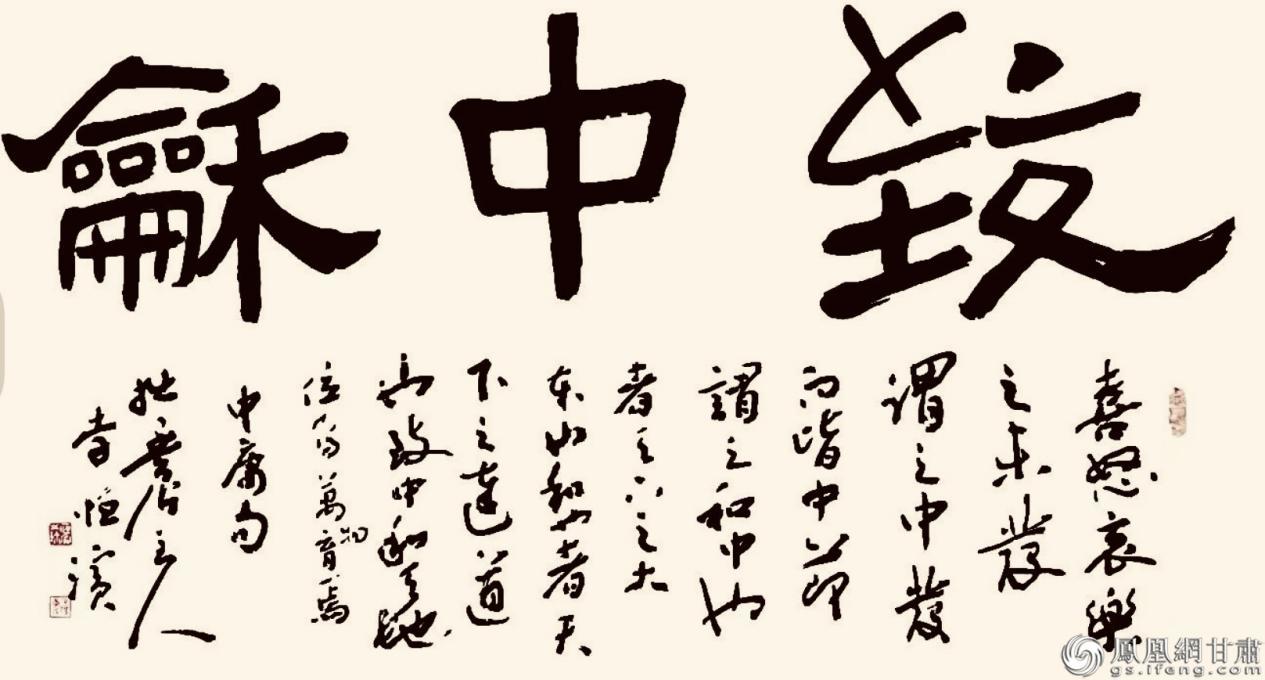 致中龢
喜怒哀樂
之未發
謂之中發
而皆中節
謂之和中也
者天下之大
本也和也者天
下之達道
也致中和天地
位焉萬物育焉
中庸句
主人
李恒濱
鳳凰網甘肅
gs.ifeng.com